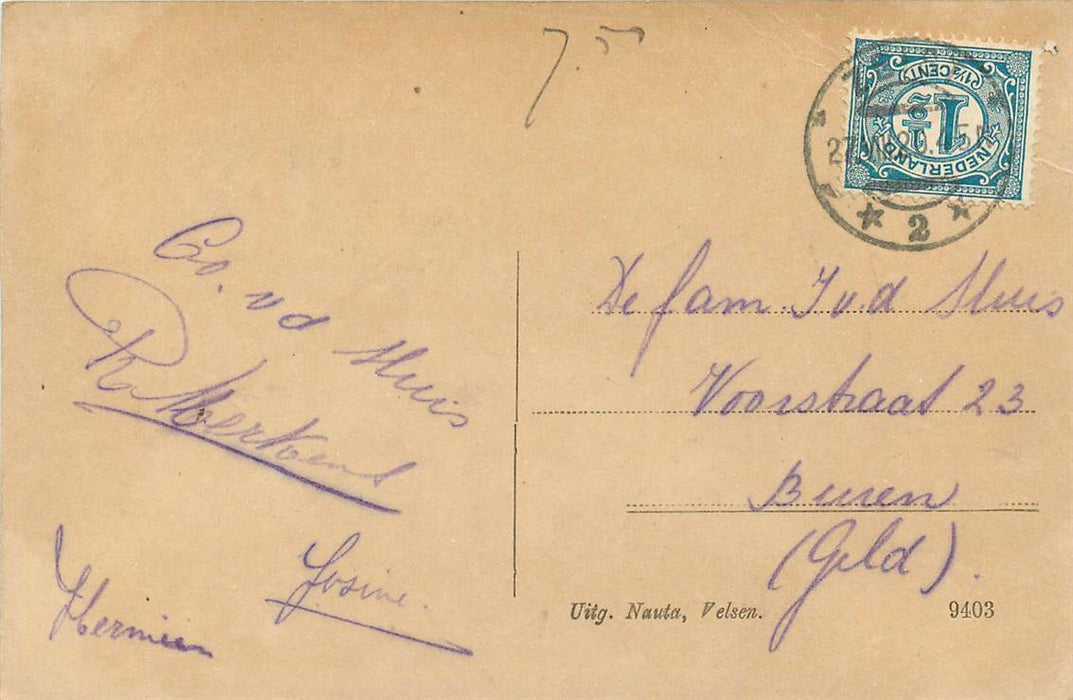 7.5
NEDERLAND
1½
(1½ CENT)
2
Co. vd Sluis
R. Meerkens
Josine.
Hermien
De fam. J v.d Sluis
Voorstraat 23
Buren
(Geld).
Uitg. Nauta, Velsen. 9403